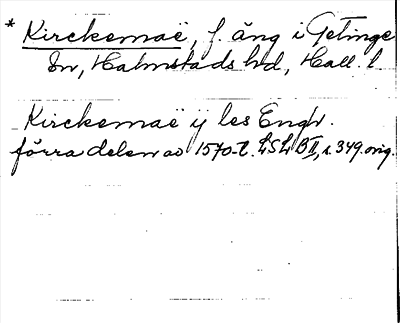 * Kirckemaë, f. äng i Getinge
sn, Halmstads hd, Hall. l
Kirckemaë ÿ les Engh.
förra delen av 1570-t. LSL BII, s. 349. orig.